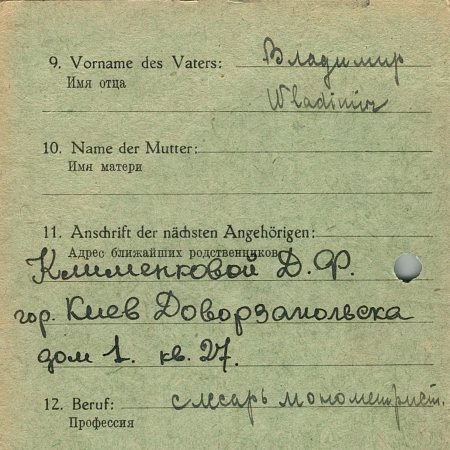 9. Vorname des Vaters: Владимир
Имя отца
Wladimir
10. Name der Mutter:
Имя матери
11. Anschrift der nächsten Angehörigen:
Адрес ближайших родственников
Клименковой Д. Ф.
гор. Киев Доворзапольска
дом 1. кв. 27.
12. Beruf: слесарь монометрист.
Профессия